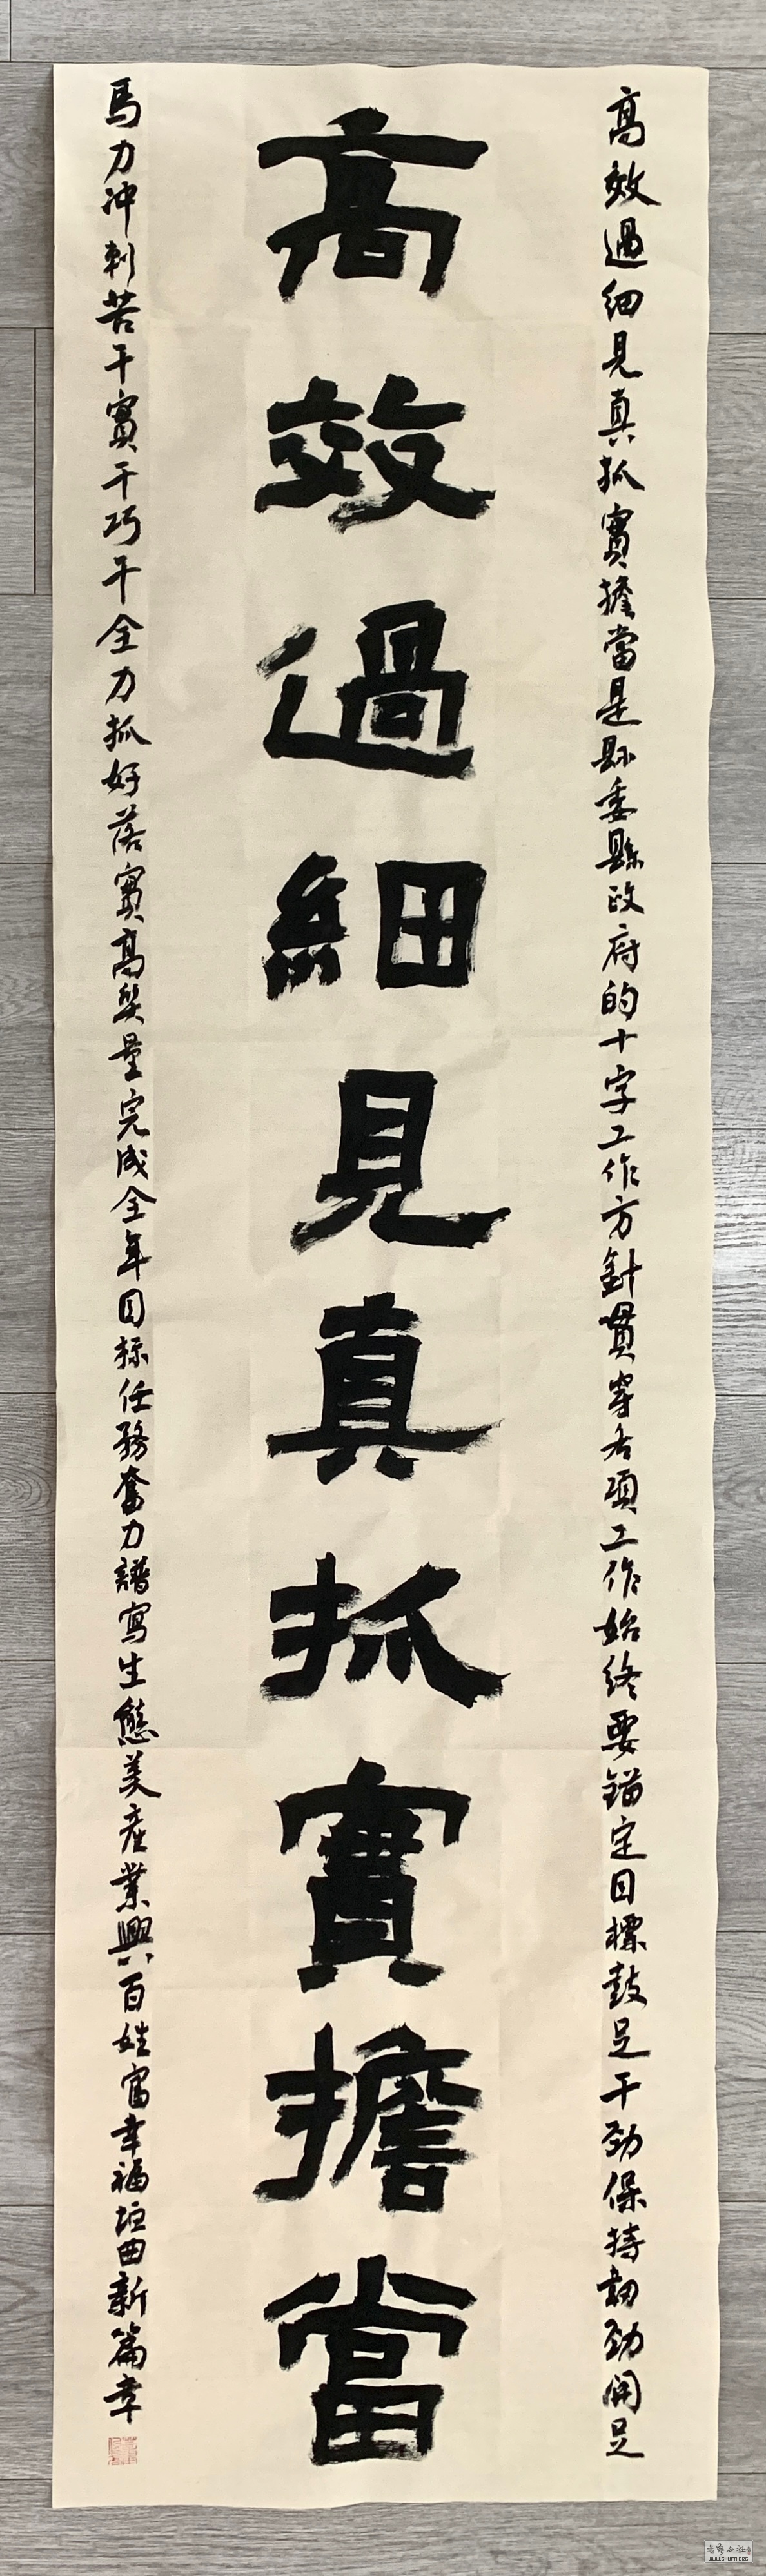 高效過細見真抓實擔當
高效過細見真抓實擔當是縣委縣政府的十字工作方針貫穿各項工作始終要錨定目標鼓足干勁保持韌勁開足
馬力冲刺苦干實干巧干全力抓好落實高质量完成全年目标任務奮力譜寫生態美産業興百姓富幸福垣曲新篇章
WWW.SHUFA.ORG